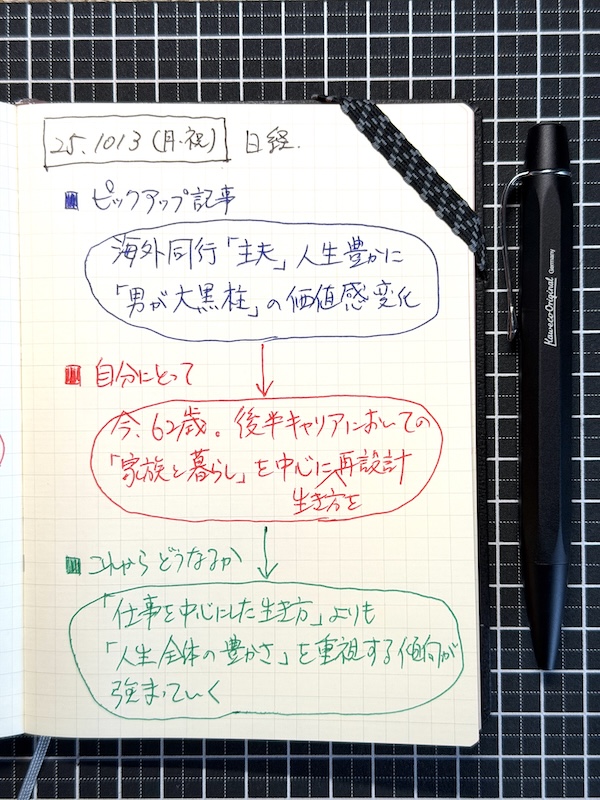 25.1013(月・祝) 日経.
ピックアップ記事
海外同行「主夫」人生豊かに
「男が大黒柱」の価値感変化
自分にとって
今、62歳。後半キャリアにおいての
「家族と暮らし」を中心に再設計
生き方を
これからどうなるか
「仕事を中心にした生き方」よりも
「人生全体の豊かさ」を重視する傾向が
強まっていく
Kaweco-Original Germany